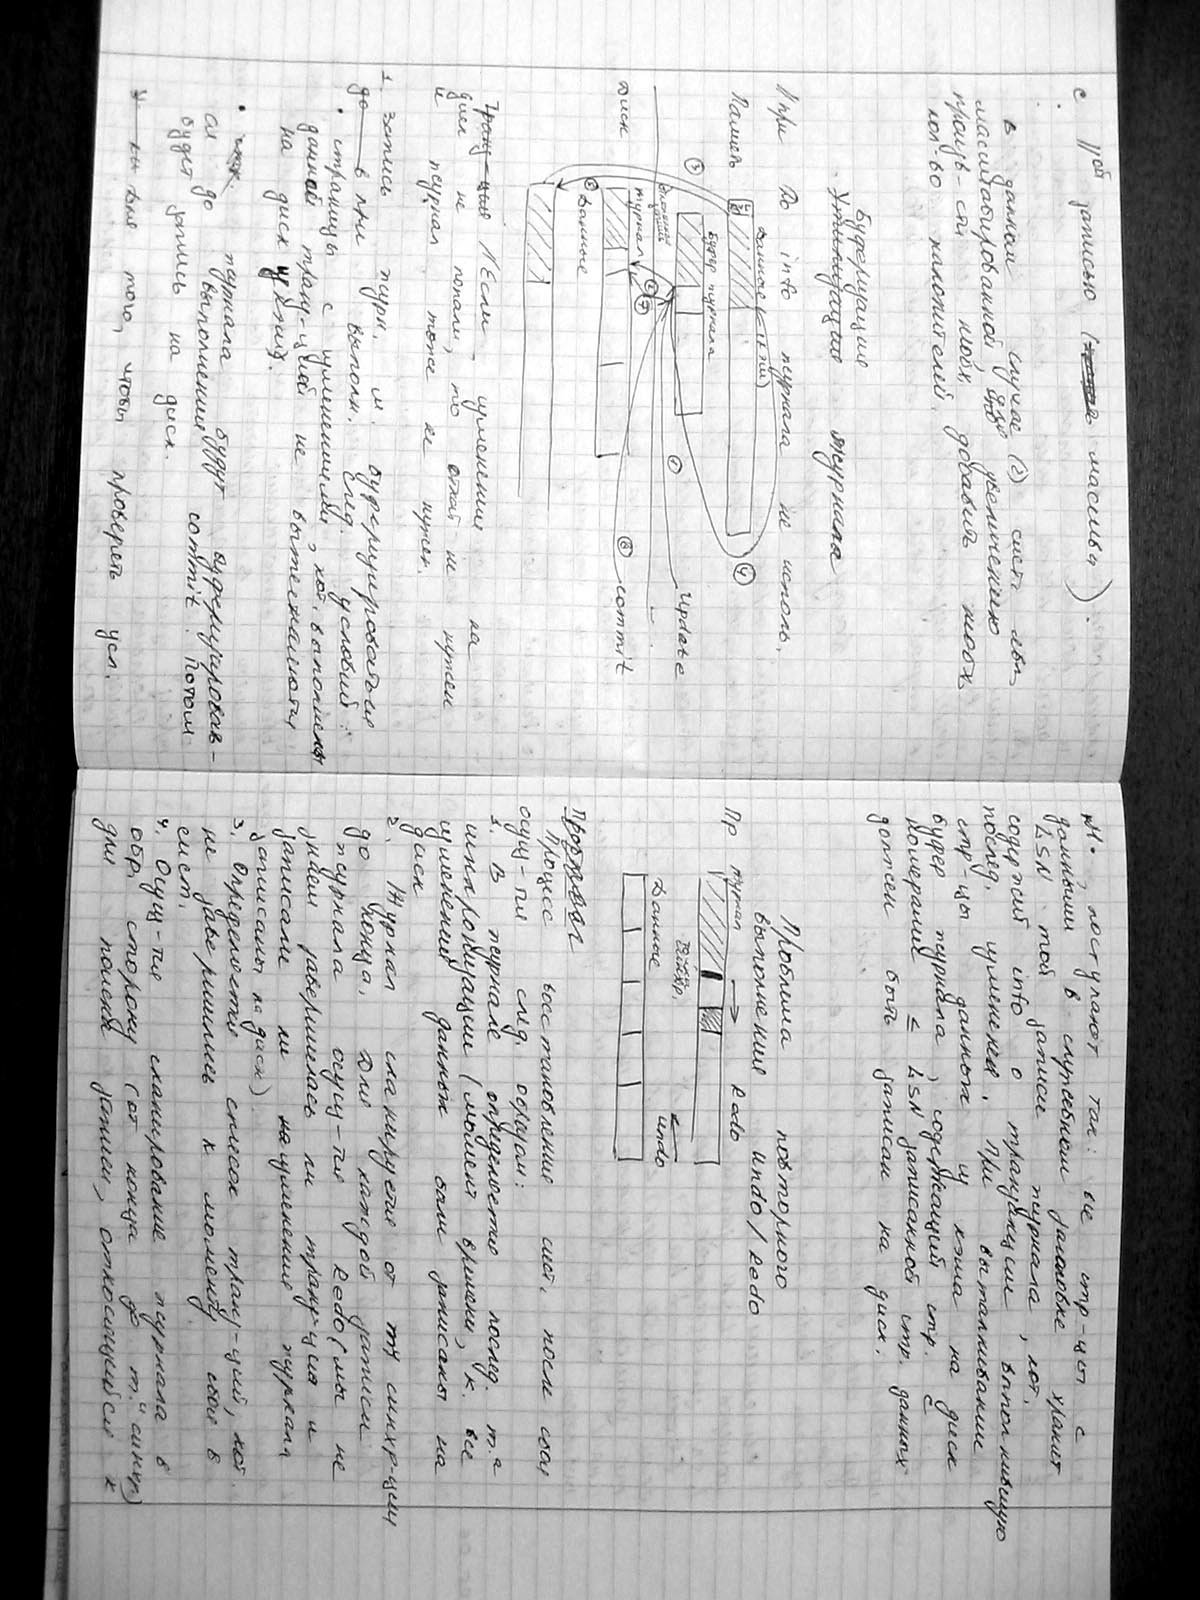 с записью (массивы).
В данном случае (2) сист. явл.
масштабированной, увеличению
произв-сти нужно добавить
кол-во накопителей.
Буферизация журнала
При До into журнала не использ.
Память
Данные (кэш)
Буфер журнала
③
④
①
Update
⑧ commit
Диск
журнал
Данные
Если изменения на
диск не попали, то откат не нужен
и журнал тоже не нужен.
1. Запись в журн. м. буферизоваться
до при выполн. след. условий:
• страницы с изменениями, кот. выполнены
данной транз-цией не вытесняются
на диск из кэша.
• до журнала будут буферизовав-
ся до выполнения commit. Потом
будет запись на диск.
для того, чтобы проверить усл.
поступают так: все стр-цы с
данными в служебном заголовке хранит
LSN той записи журнала, кот.
содержит into о транзакции выполнившую
послед. изменения. При выталкивании
стр-цы данных из кэша на диск
буфер журнала, содержащий стр. с
номерами ≤ LSN записанной стр. данных
должен быть записан на диск.
Проблема повторного
выполнения undo/Redo
журнал → Redo
undo
Данные
Процесс восстановления сист. после сбоя
осущ-тся след. образом:
1. В журнале определяется послед. т-а
синхронизации (момент времени, к. все
изменения данных были записаны на
диск
2. Журнал сканируется от т. синхр-ции
до конца, для каждой записи
журнала осущ-тся Redo (мы не
знаем завершилась ли транзакция и
записали ли на изменения журнала
записаны на диск)
3. Определяется список транз-ций, кот.
не завершились к моменту сбоя в
сист.
4. Осущ-тся сканирование журнала в
обр. сторону (от конца до т. синхр)
для поиска записи, относящейся к